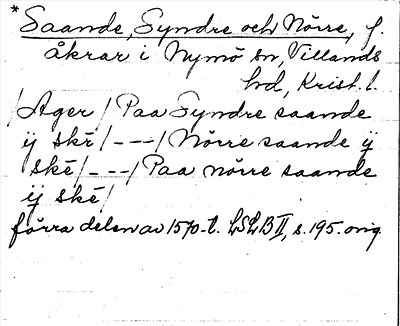 *Saande, Syndre och Nörre, f.
åkrar i Nymö sn, Villands
hd, Krist. l.
/Ager/ Paa Syndre saande
ij skē/---/ Nörre saande ij
skē/---/ Paa nörre saande
ij skē/
förra delen av 1570-t. LSLB II, s. 195. orig.